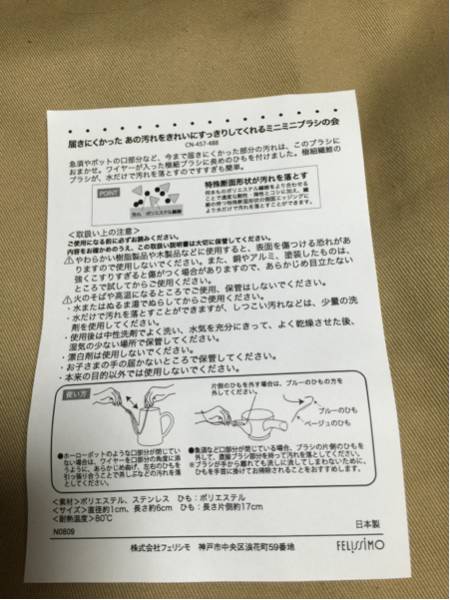 届きにくかった あの汚れをきれいにすっきりしてくれるミニミニブラシの会
CN-457-488
急須やポットの口部分など、今まで届きにくかった部分の汚れは、このブラシに
おまかせ。ワイヤーが入った極細ブラシに長めのひもを付けました。極細繊維の
ブラシが、水だけで汚れを落とすのですすぎも簡単。
POINT
汚れ ポリエステル繊維
特殊断面形状が汚れを落とす
<取扱い上の注意>
ご使用になる前に必ずお読みください。
内容をお確かめのうえ、この取扱い説明書は大切に保管してください。
⚠やわらかい樹脂製品や木製品などに使用すると、表面を傷つける恐れがあ
りますので使用しないでください。また、銅やアルミ、塗装したものは、
強くこすりすぎると傷がつく場合がありますので、あらかじめ目立たない
ところで試してからご使用ください。
⚠火のそばや高温になるところでご使用、保管はしないでください。
・水またはぬるま湯でぬらしてからご使用ください。
・水だけで汚れを落とすことができますが、しつこい汚れなどは、少量の洗
剤を使用してください。
・使用後は中性洗剤でよく洗い、水気を充分にきって、よく乾燥させた後、
湿気の少ない場所で保管してください。
・漂白剤は使用しないでください。
・お子さまの手の届かないところで保管してください。
・本来の目的以外では使用しないでください。
使い方
●ホーローポットのような口部分が閉じてい
ない場合は、ワイヤーを口部分の角度に添
うように、あらかじめ曲げ、左右のひもを
引っ張り合うことで蒸しぶなどの汚れを落
としてください。
片側のひもを外す場合は、ブルーのひもの方を
外してください。
ブルーのひも
ベージュのひも
●急須など口部分が閉じている場合、ブラシの片側のひもを
外して、直接ブラシ部分を持って汚れを落としてください。
※ブラシが手から離れても流しに流してしまわないために、
ひもを手首に掛けてお掃除されることをおすすめします。
<素材>ポリエステル、ステンレス ひも:ポリエステル
<サイズ>直径約1cm、長さ約6cm ひも:長さ片側約17cm
<耐熱温度>80℃
N0809
日本製
株式会社フェリシモ 神戸市中央区浪花町59番地
FELISSIMO